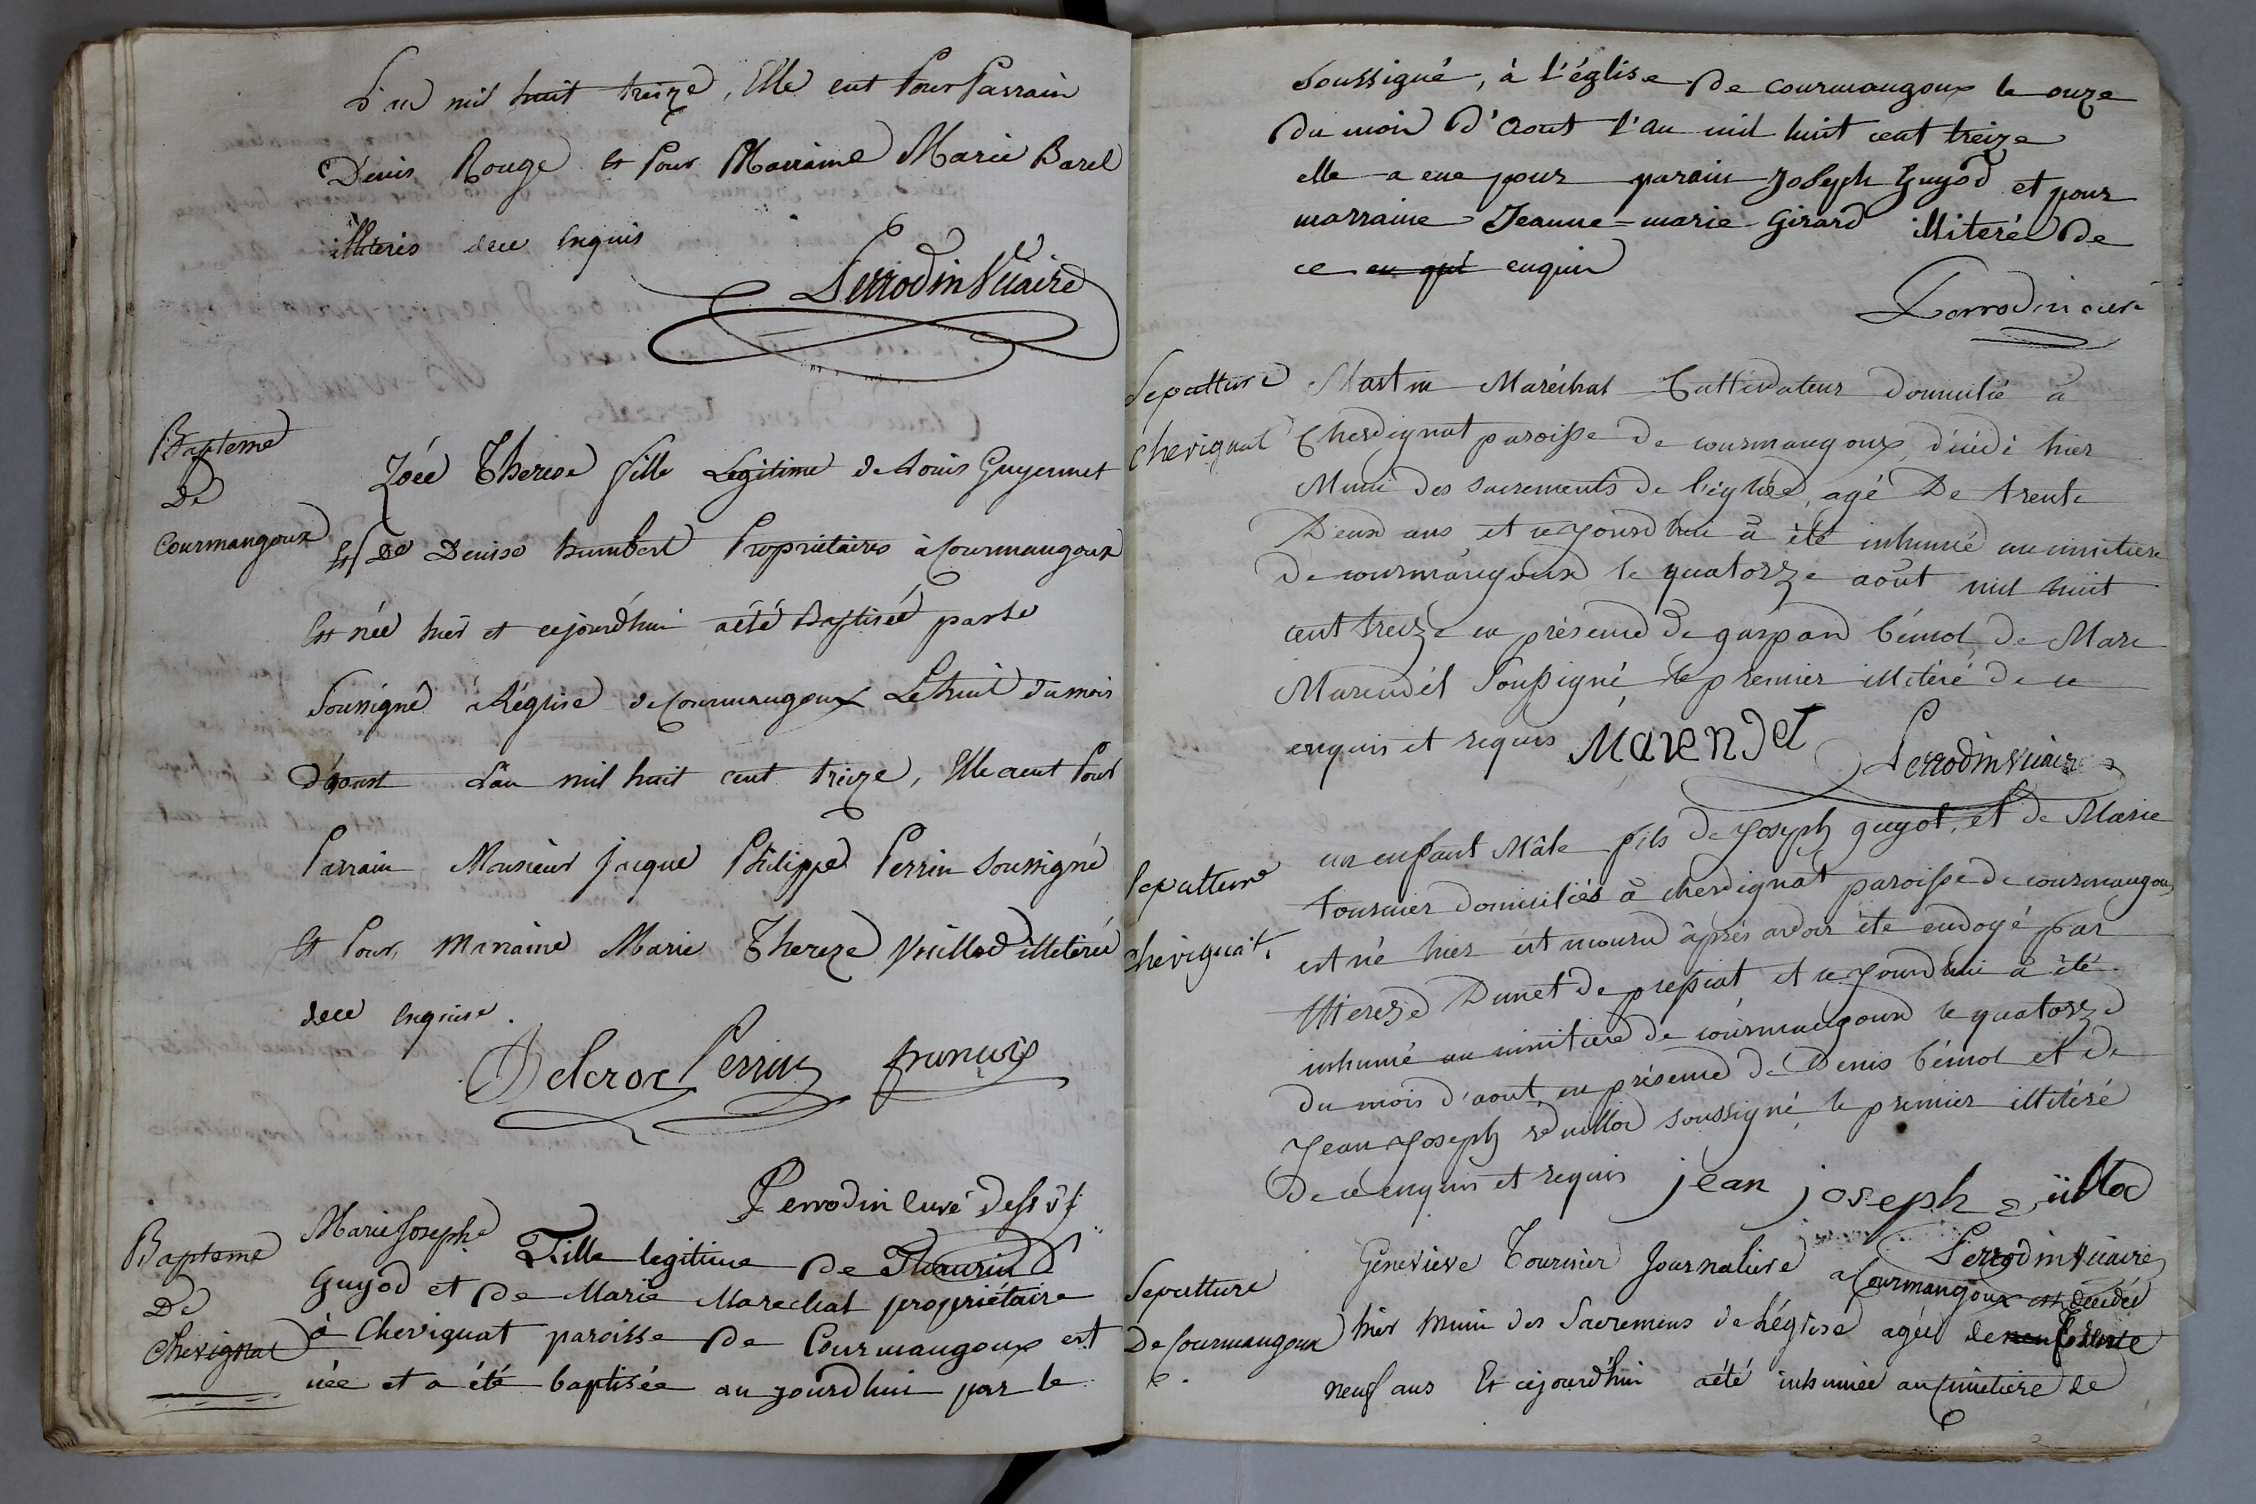 L'an mil huit treize, Elle eut Pour Parrain
Denis Rouge et Pour Marraine Marie Barel
illiterés dece enquis
Perrodin Vicaire
Bapteme
De
Courmangoux
Zoée Therese fille Legitime de Louis Guyennet
Et De Denise humbert Propriétaires à Courmangoux
Est née hier et cejourd'hui aété Baptisée par le
Soussigné à l'église de Courmangoux Le huit du mois
d'aoust L'an mil huit cent treize, Elle a eut Pour
Parrain Monsieur Jacque Philippe Perrin soussigné
Et Pour Marraine Marie Thereze Vuillod illetérée
dece enquise.
Delcroz Perrin françois
Perrodin Curé desst
Bapteme
De
Chevignat
Marie Josephe Fille legitime de
Guyod et de Marie Marechal propriétaire
à Chevignat paroisse de Courmangoux est
née et a été baptisée au jourdhui par le
soussigné, à l'église de Courmangoux le onze
du mois d'Aout l'an mil huit cent treize
elle a eue pour parain Joseph Guyod et pour
marraine Jeanne=marie Girard illiteré de
ce en qui enquis
Perrodin curé
Sepulture
Chevignat
Martin Maréchal Cultivateur Domicilié à
Chevignat paroisse de courmangoux, décédé hier
Muni des sacrements de l'église, agé De trente
Deux ans et cejourdhui a été inhumé au cimitiere
de courmangoux le quatorze aôut mil huit
cent treize en présence de gaspard bémol, de Marc
Marendét soussigné, le premier illitéré de ce
enquis et requis Marendet
Perrodin vicaire
Sepulture
Chevignat.
un enfant Mâle fils de Joseph guyot, et de Marie
tournier domiciliés à chevignat paroisse de courmangoux
est né hier est mouru âprès avoir été endoyé par
thereze Dunet de pressiat et cejourdhui a été
inhumé au cimitiere de courmangoux le quatorze
du mois d'aout, en présence de Denis bémol et de
Jean Joseph vuillod soussigné, le premier illitéré
de ce enquis et requis jean joseph vüillod
Perrodin vicaire
Sepulture
De Courmangoux
Genevieve Tournier Journaliere a Courmangoux est décédée
hier Munie des Sacremens de l'église agée de neuf trente
neuf ans Et cejourd'hui aété inhumée au Cimetiere de